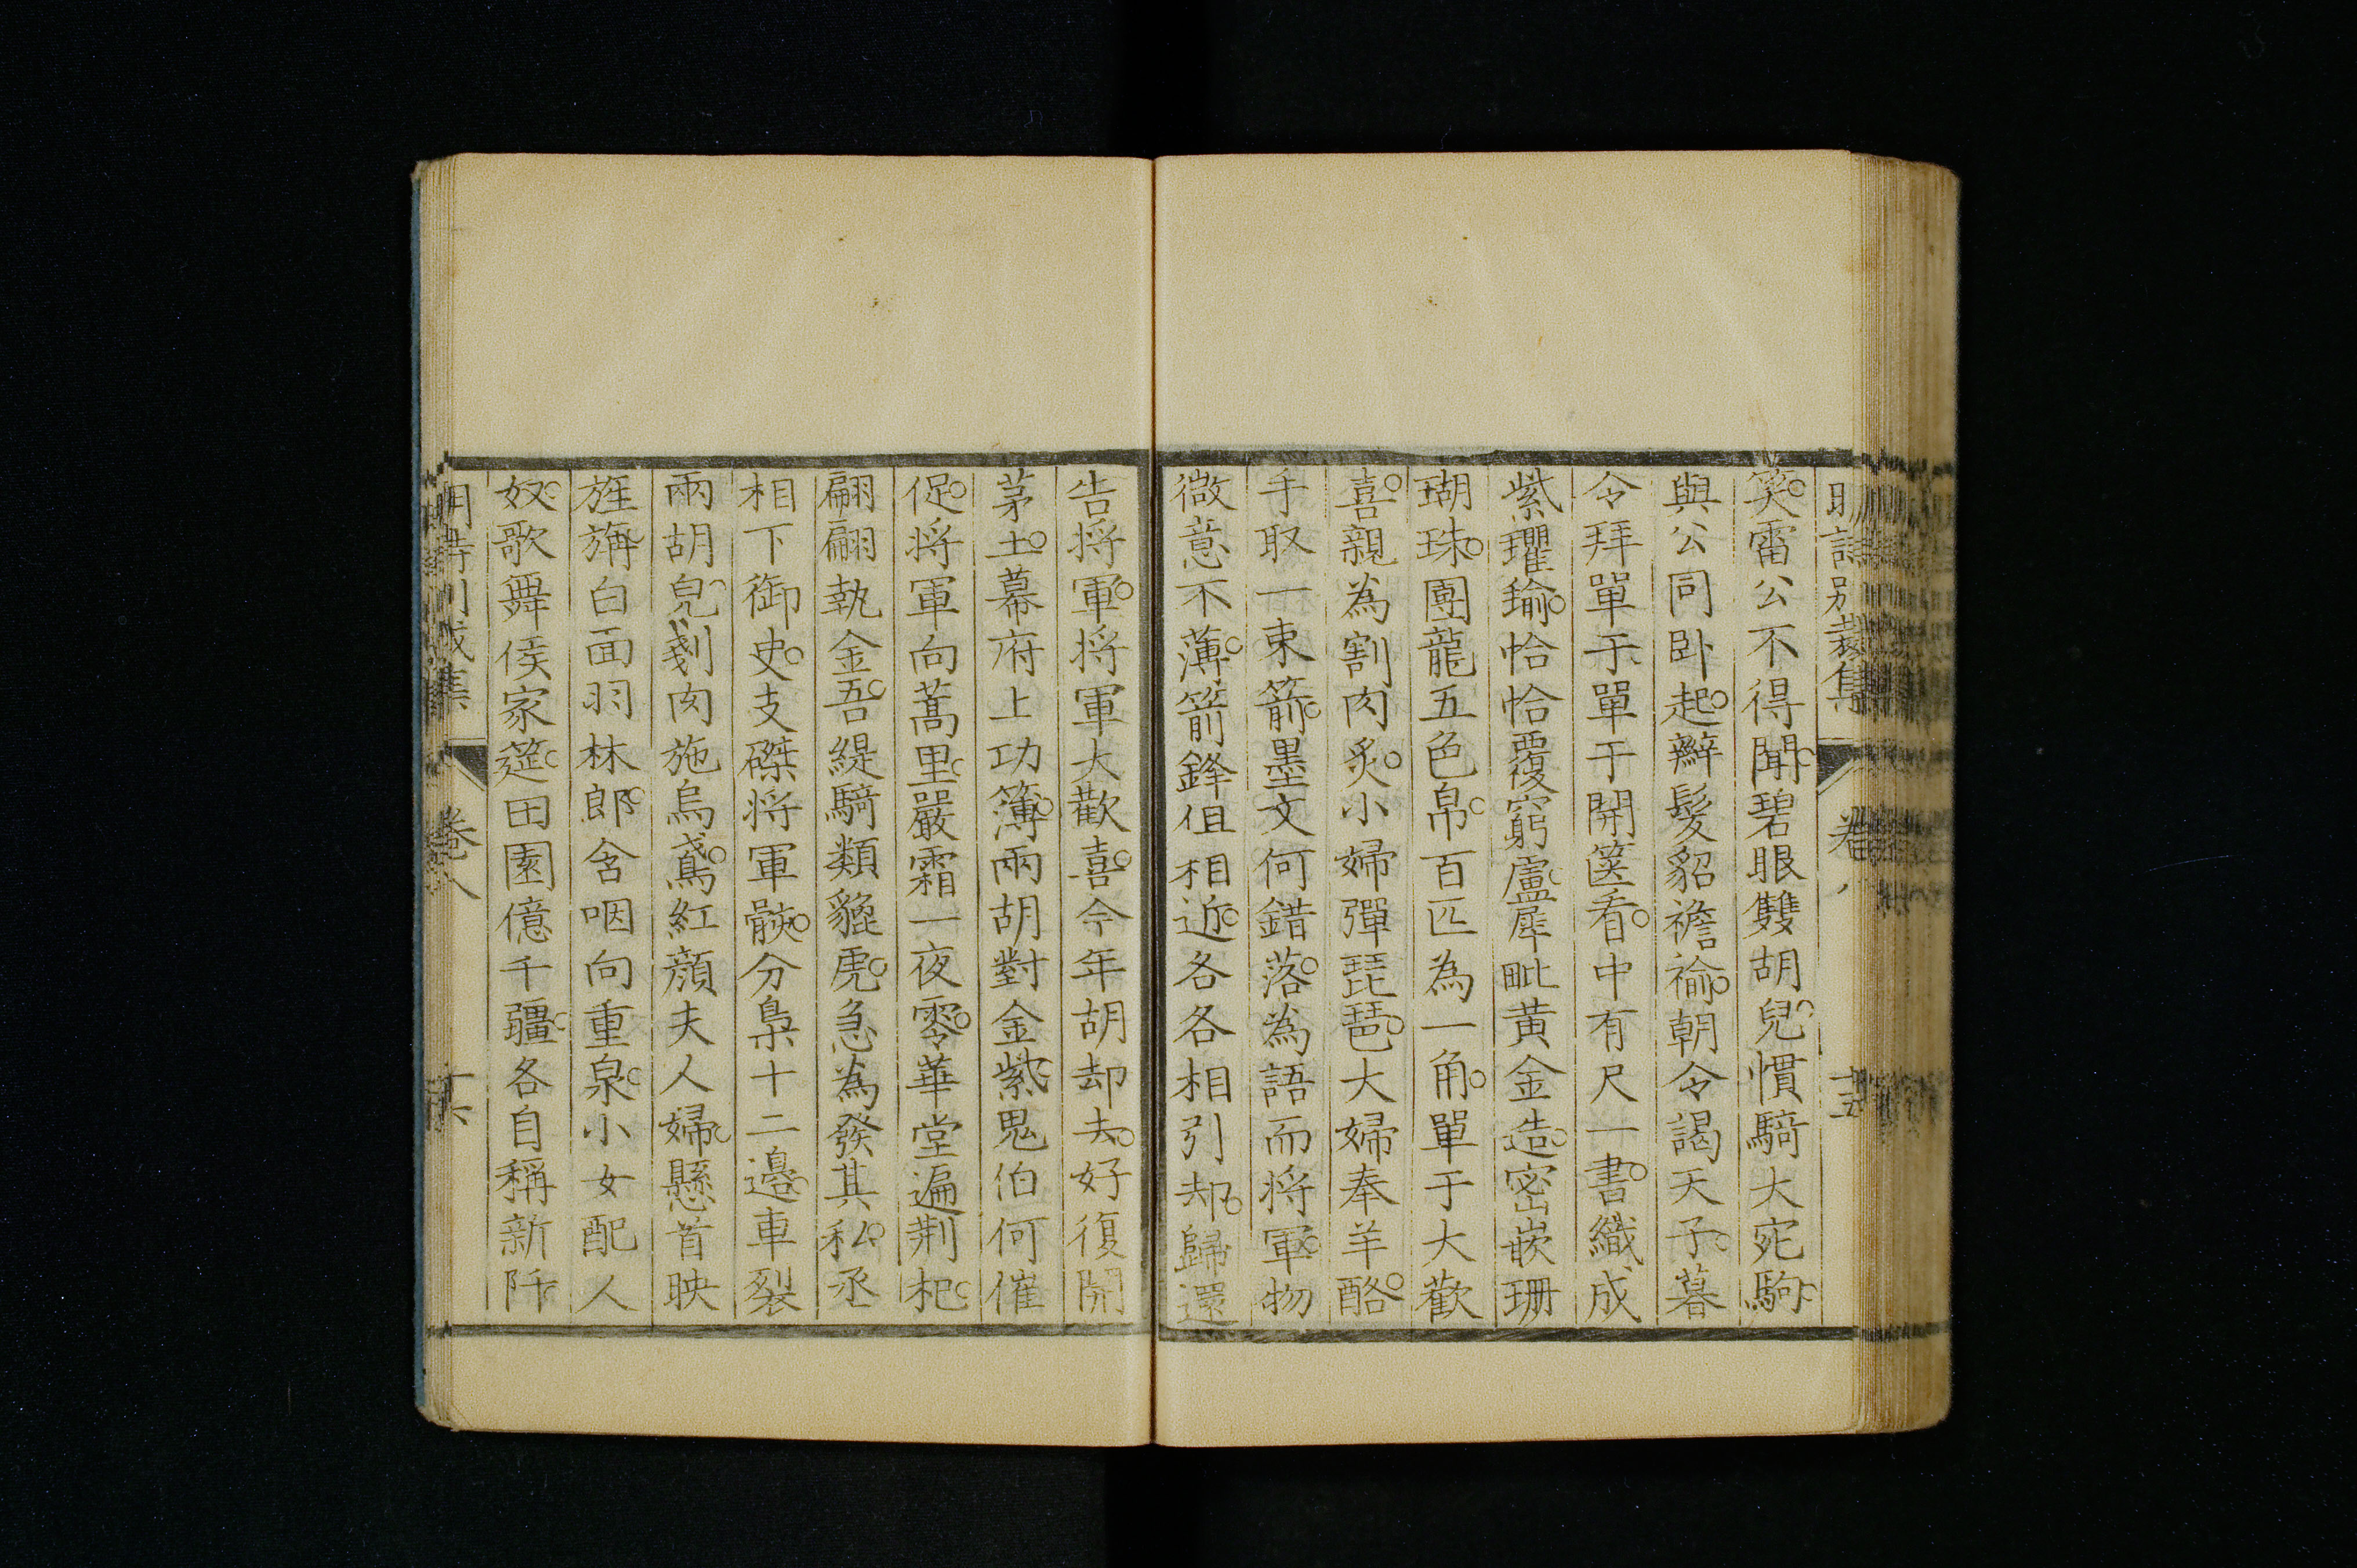 明詩別裁集 卷八 十五
笑雷公不得聞碧眼雙胡兒慣騎大宛駒
與公同卧起辮髮貂襜褕朝令謁天子暮
令拜單于單于開篋看中有尺一書織成
紫瓘瑜恰恰覆窮廬犀毗黃金造密嵌珊
瑚珠團龍五色帛百匹為一角單于大歡
喜親為割肉炙小婦彈琵琶大婦奉羊酪
手取一束箭墨文何錯落為語而將軍物
微意不薄箭鋒但相近各各相引却歸還
告將軍將軍大歡喜今年胡却去好復開
茅土幕府上功簿兩胡對金紫鬼伯何催
促將軍向蒿里嚴霜一夜零華堂遍荆杞
翩翩執金吾緹騎類貔虎急為發其私丞
相下御史支磔將軍骸分梟十二邊車裂
兩胡兒剗肉施烏鳶紅顏夫人婦懸首映
旌旃白面羽林郎含咽向重泉小女配人
奴歌舞侯家筵田園億千疆各自稱新阡
明詩別裁集 卷八 十六